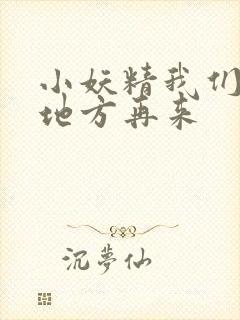 小妖精我们
地方再来
沉梦仙